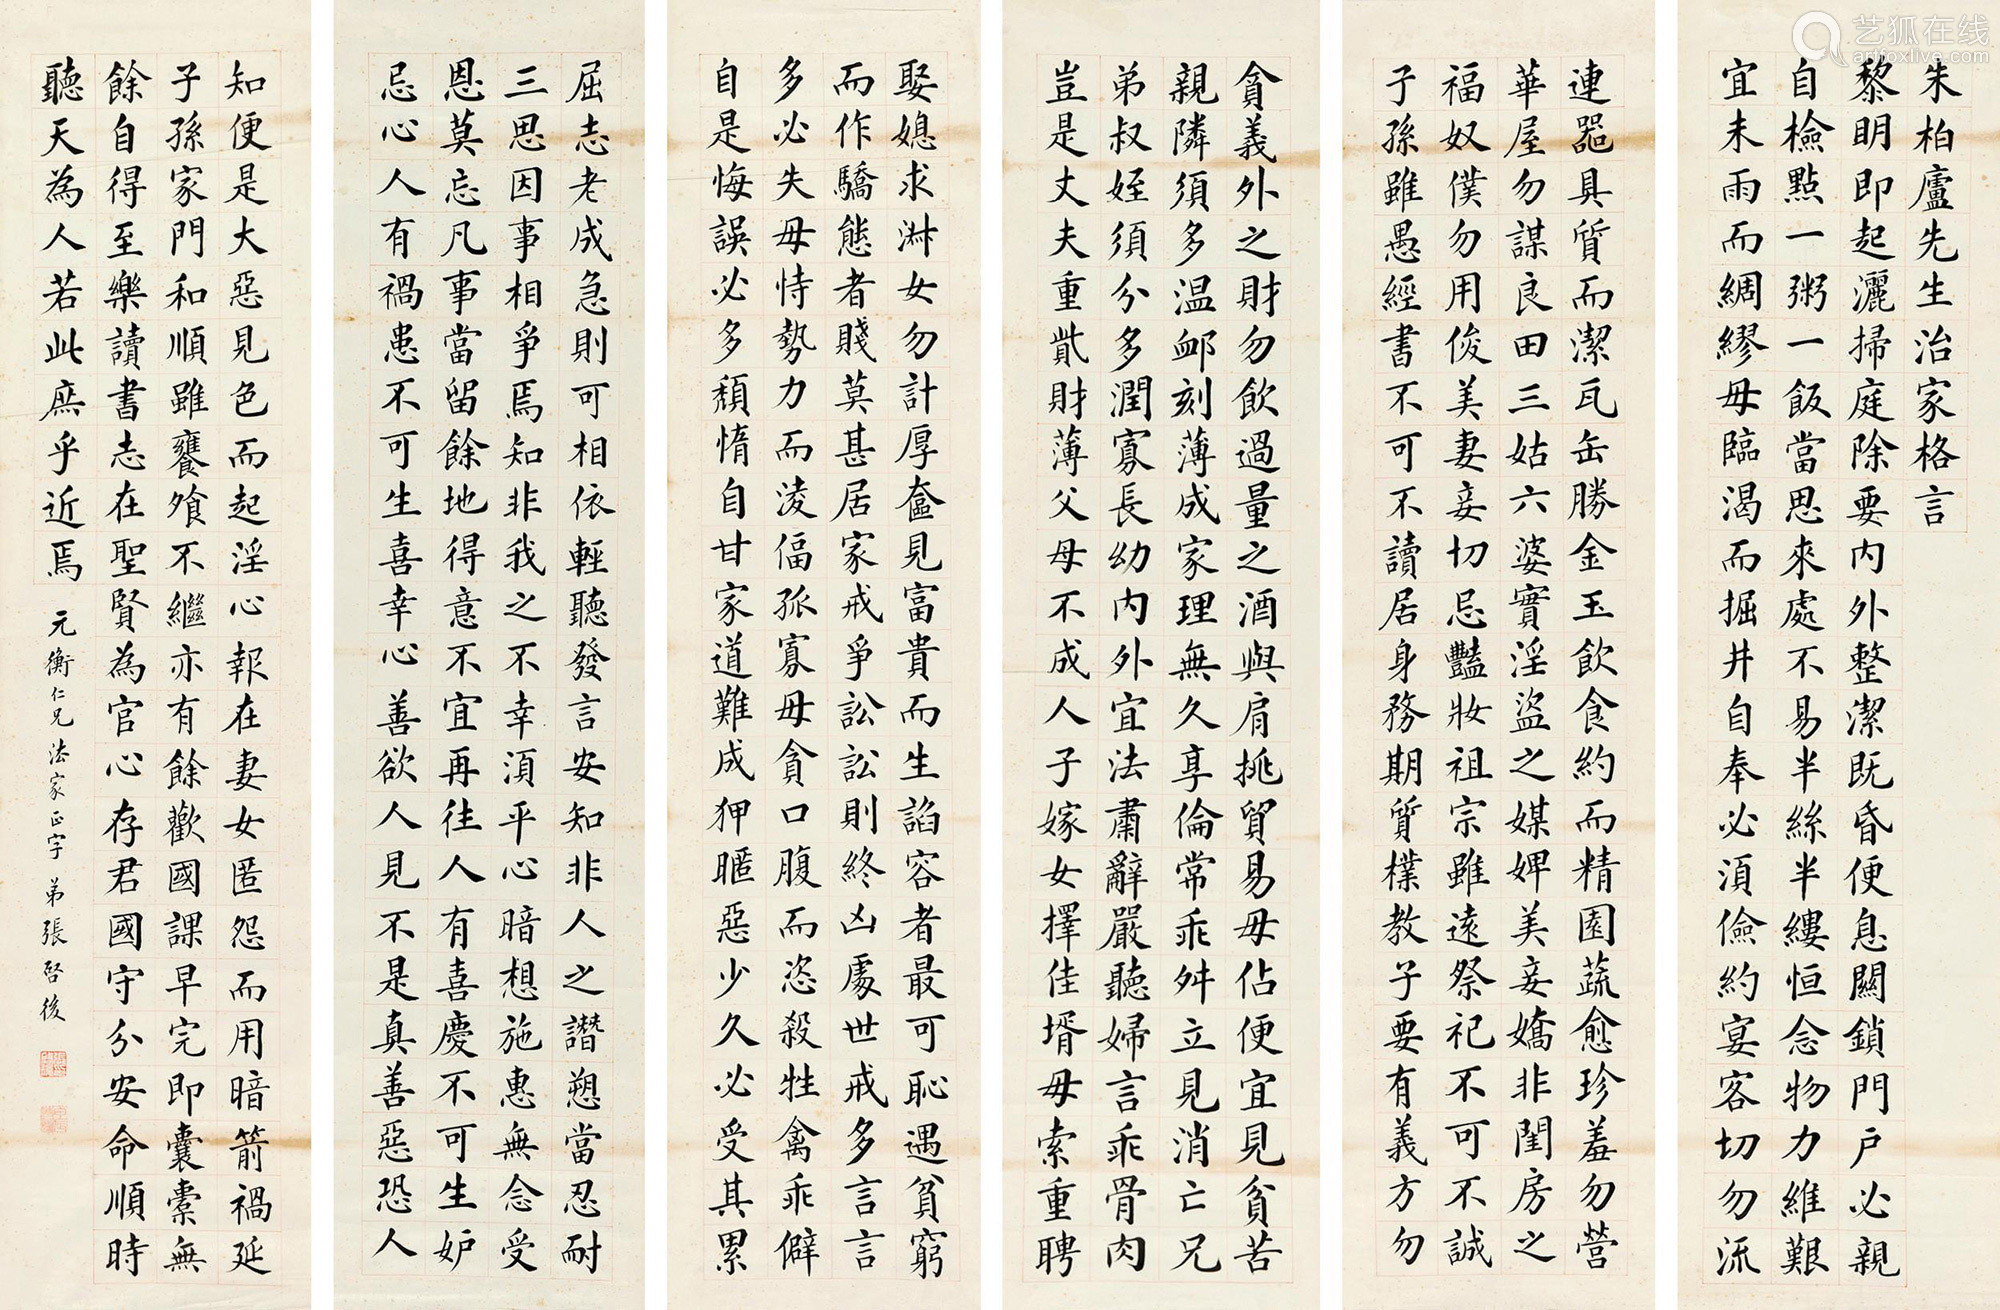 朱柏廬先生治家格言
黎明即起灑掃庭除要內外整潔既昏便息關鎖門戶必親
自檢點一粥一飯當思來處不易半絲半縷恒念物力維艱
宜未雨而綢繆毋臨渴而掘井自奉必須儉約宴客切勿流
連器具質而潔瓦缶勝金玉飲食約而精園蔬愈珍羞勿營
華屋勿謀良田三姑六婆實淫盜之媒婢美妾嬌非閨房之
福奴僕勿用俊美妻妾切忌豔妝祖宗雖遠祭祀不可不誠
子孫雖愚經書不可不讀居身務期質樸教子要有義方勿
貪義外之財勿飲過量之酒與肩挑貿易毋佔便宜見貧苦
親隣須多温卹刻薄成家理無久享倫常乖舛立見消亡兄
弟叔姪須分多潤寡長幼內外宜法肅辭嚴聽婦言乖骨肉
豈是丈夫重貲財薄父母不成人子嫁女擇佳壻毋索重聘
娶媳求淑女勿計厚奩見富貴而生諂容者最可恥遇貧窮
而作驕態者賤莫甚居家戒爭訟訟則終凶處世戒多言言
多必失毋恃勢力而淩偪孤寡毋貪口腹而恣殺牲禽乖僻
自是悔誤必多頹惰自甘家道難成狎暱惡少久必受其累
屈志老成急則可相依輕聽發言安知非人之譖愬當忍耐
三思因事相爭焉知非我之不幸須平心暗想施惠無念受
恩莫忘凡事當留餘地得意不宜再往人有喜慶不可生妒
忌心人有禍患不可生喜幸心善欲人見不是真善惡恐人
知便是大惡見色而起淫心報在妻女匿怨而用暗箭禍延
子孫家門和順雖饔飧不繼亦有餘歡國課早完即囊橐無
餘自得至樂讀書志在聖賢為官心存君國守分安命順時
聽天為人若此庶乎近焉
元衡仁兄法家正字 弟張啓後
艺狐在线
artfoxlive.com